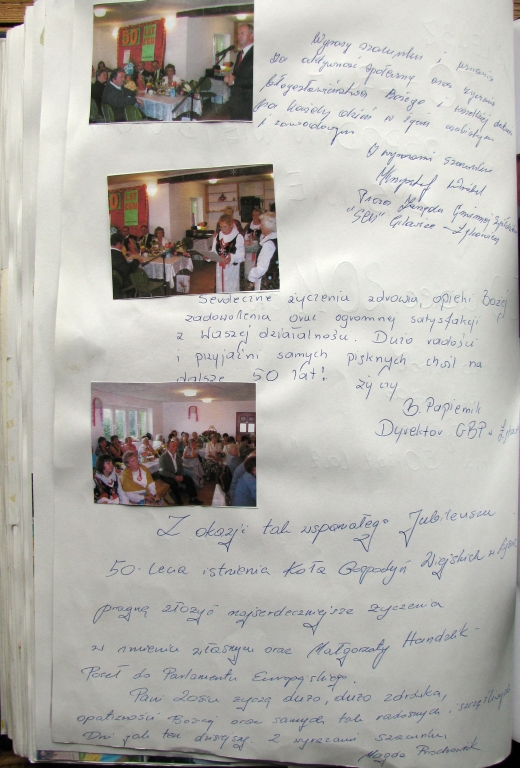 50
Wyrazy szacunku i uznania
za aktywność społeczną oraz życzenia
błogosławieństwa Bożego i wszelkiej
na każdy dzień w życiu osobistym
i zawodowym
Z wyrazami szacunku
Krzysztof
Prezes Zarządu Gminnej Spółdzielni
Serdeczne życzenia zdrowia, opieki Bożej
zadowolenia oraz ogromnej satysfakcji
z Waszej działalności. Dużo radości
i przyjaźni samych pięknych chwil na
dalsze 50 lat!
życzy
B. Papiernik
Dyrektor GBP
Z okazji tak wspaniałego Jubileuszu
50-lecia istnienia Koła Gospodyń Wiejskich w
pragnę złożyć najserdeczniejsze życzenia
w imieniu własnym oraz Małgorzaty Handzlik -
Poseł do Parlamentu Europejskiego.
Pani Zosiu życzę dużo, dużo zdrówka,
opatrzności Bożej oraz samych tak radosnych, szczęśliwych
Dni jak ten dzisiejszy. Z wyrazami szacunku,
Magda